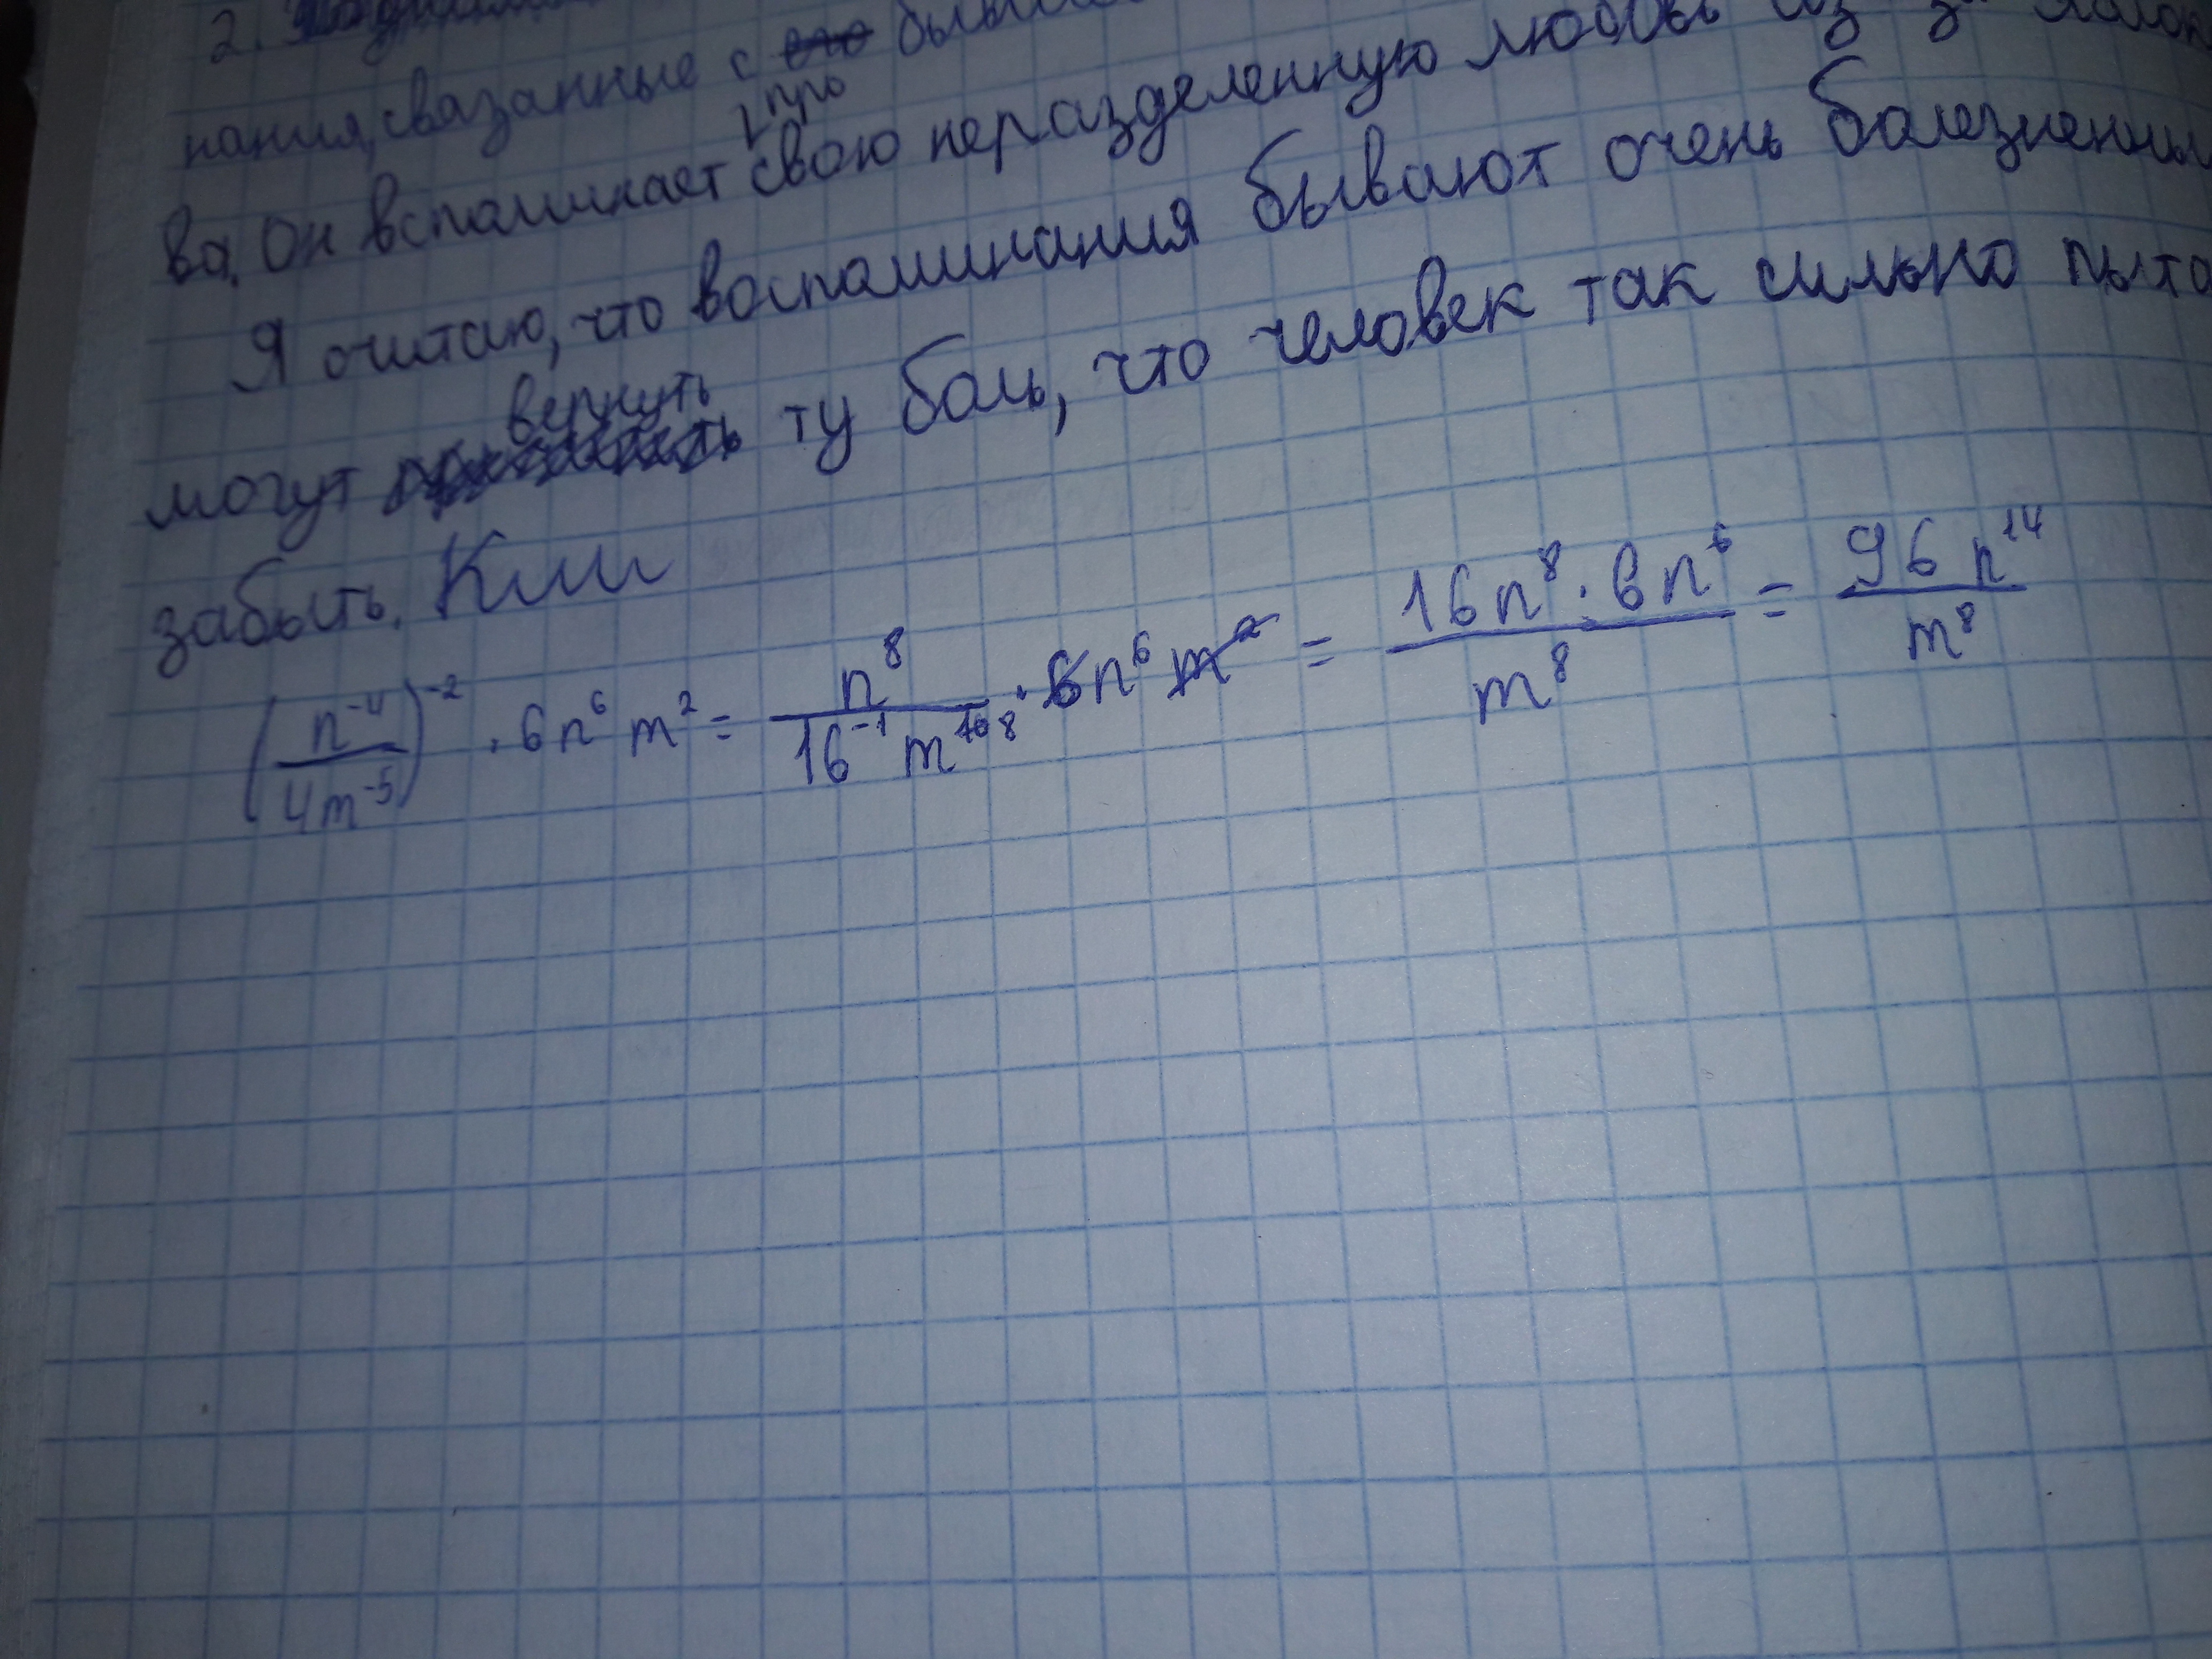 2.
нания, связанные с его бы
про
ва. Он вспоминает свою неразделенную любовь из за
Я считаю, что воспоминания бывают очень болезненны
вернуть
могут ту боль, что человек так сильно пыта
забыть. Кми
(n⁻⁴/4m⁻⁵)⁻² · 6n⁶m² = n⁸/16⁻¹m¹⁰ ⁸ · 6n⁶m² = 16n⁸·6n⁶/m⁸ = 96n¹⁴/m⁸